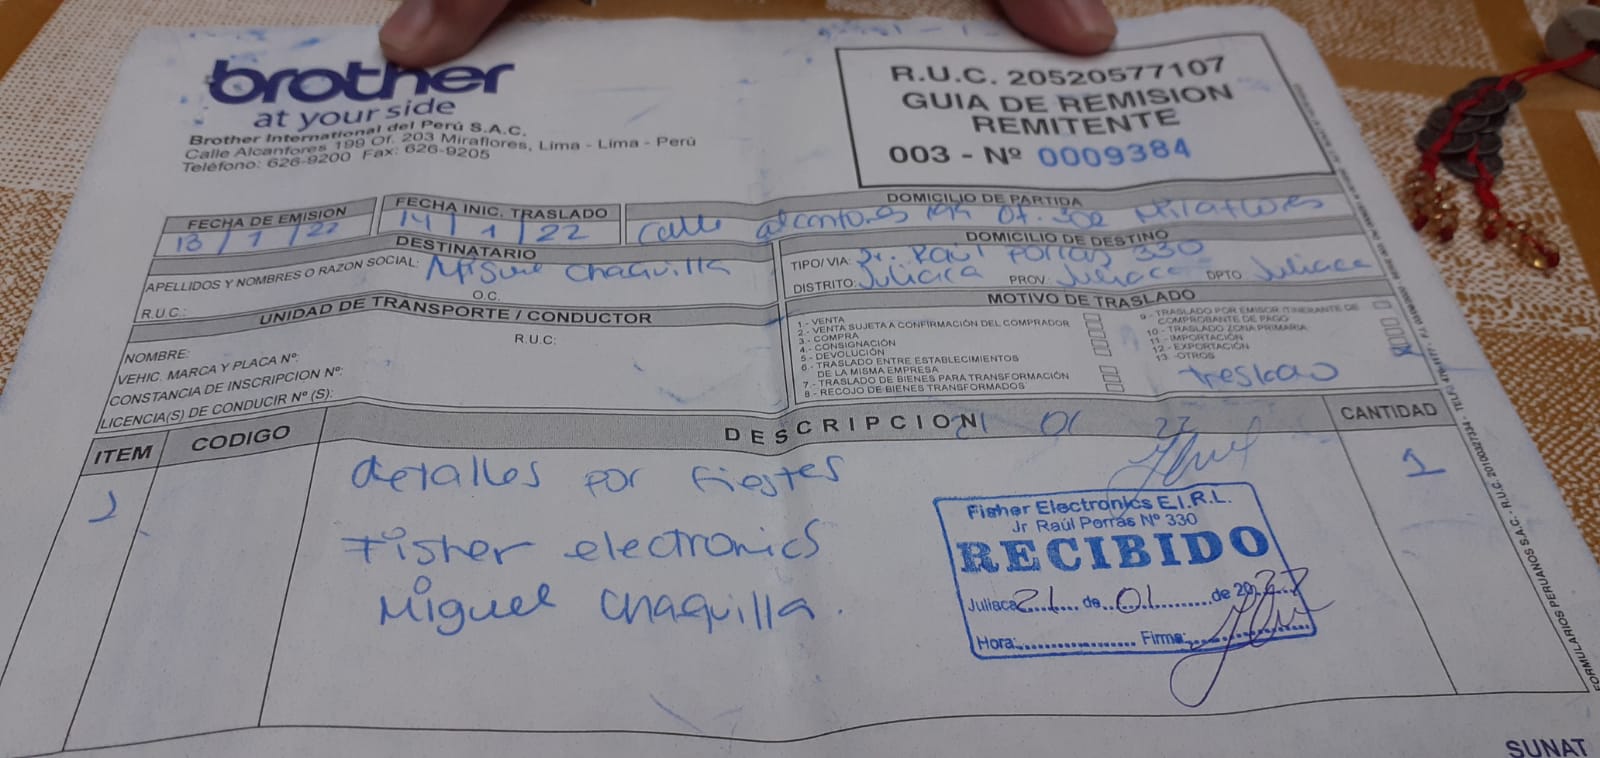 brother
at your side
Brother International del Perú S.A.C.
Calle Alcanfores 199 Of. 203 Miraflores, Lima - Lima - Perú
Teléfono: 626-9200 Fax: 626-9205
R.U.C. 20520577107
GUIA DE REMISION
REMITENTE
003 - Nº 0009384
FECHA DE EMISION
13 / 1 / 22
FECHA INIC. TRASLADO
14 / 1 / 22
DOMICILIO DE PARTIDA
Calle alcanfores 199 Of. 302 Miraflores
DESTINATARIO
APELLIDOS Y NOMBRES O RAZON SOCIAL: Miguel Chaquilla
R.U.C.: O.C.
DOMICILIO DE DESTINO
TIPO/ VIA: Jr. Raul Porras 330
DISTRITO: Juliaca PROV: Juliaca DPTO Juliaca
UNIDAD DE TRANSPORTE / CONDUCTOR
R.U.C:
NOMBRE:
VEHIC. MARCA Y PLACA Nº
CONSTANCIA DE INSCRIPCION Nº:
LICENCIA(S) DE CONDUCIR Nº (S):
MOTIVO DE TRASLADO
1 - VENTA
2 - VENTA SUJETA A CONFIRMACIÓN DEL COMPRADOR
3 - COMPRA
4 - CONSIGNACIÓN
5 - DEVOLUCIÓN
6 - TRASLADO ENTRE ESTABLECIMIENTOS
DE LA MISMA EMPRESA
7 - TRASLADO DE BIENES PARA TRANSFORMACIÓN
8 - RECOJO DE BIENES TRANSFORMADOS
9 - TRASLADO POR EMISOR ITINERANTE DE
COMPROBANTE DE PAGO
10 - TRASLADO ZONA PRIMARIA
11 - IMPORTACIÓN
12 - EXPORTACIÓN
13 - OTROS
ITEM CODIGO DESCRIPCION CANTIDAD
21 01 22
1 detalles por fiestas 1
Fisher electronics
Miguel Chaquilla.
Fisher Electronics E.I.R.L.
Jr Raúl Porras Nº 330
RECIBIDO
Juliaca 21 de 01 de 2022
Hora: Firma:
FORMULARIOS PERUANOS S.A.C. - R.U.C. 20100327334
SUNAT